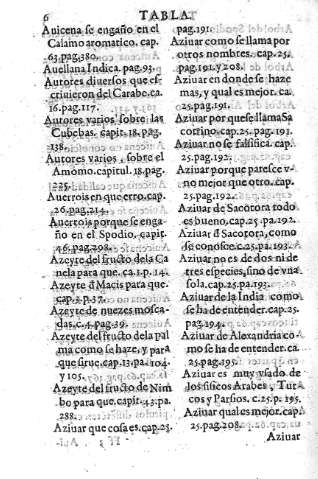 6 TABLA.
Auicena se engaño en el
Calamo aromatico. cap.
63.pag.380.
Auellana Indica. pag.93.
Autores diuersos que es
criuieron del Carabe. ca.
16.pag.117.
Autores varios sobre las
Cubebas. capit. 18. pag.
138.
Autores varios, sobre el
Amomo. capitul. 18. pag.
225.
Auerrois en que erro. cap.
26.pag.214.
Auerrois porque se enga-
ño en el Spodio, capit.
46.pag.298.
Azeyte del fructo dela Ca
nela para que. ca.1.p.14.
Azeyte d Macis para que.
cap.3.p.37.
Azeyte de nuezes mosca-
das. c.4.pag.39.
Azeyte del fructo dela pal
ma como se haze, y para
que sirue. cap.13.pa.104.
y 105.
Azeyte del fructo de Nim
bo para que. capit.43.pa.
288.
Aziuar que cosa es. cap.23.
pag.191.
Aziuar como se llama por
otros nombres. cap.25.
pag.191.y 208.
Aziuar en donde se haze
mas, y qual es mejor. ca
25.pag.191.
Aziuar por que se llama Sa
cortino. cap.25. pag.193.
Aziuar no se falsifica. cap.
25.pag.192.
Aziuar porque paresce v-
no mejor que otro. cap.
25.pag.192.
Aziuar de Sacotora todo
es bueno. cap.25.pa.192.
Aziuar d Sacotora, como
se conosce. c.25.pa.193.
Aziuar no es de dos ni de
tres especies, sino de vna
sola. cap.25.pa.193.
Aziuar de la India como
se ha de entender. cap.25.
pag.194.
Aziuar de Alexandria co-
mo se ha de entender. ca.
25.pag.195.
Aziuar es muy vsado de
los fisicos Arabes, Tur
cos y Parsios. c.25.p.195.
Aziuar qual es mejor. cap.
25.pag.208.
Aziuar